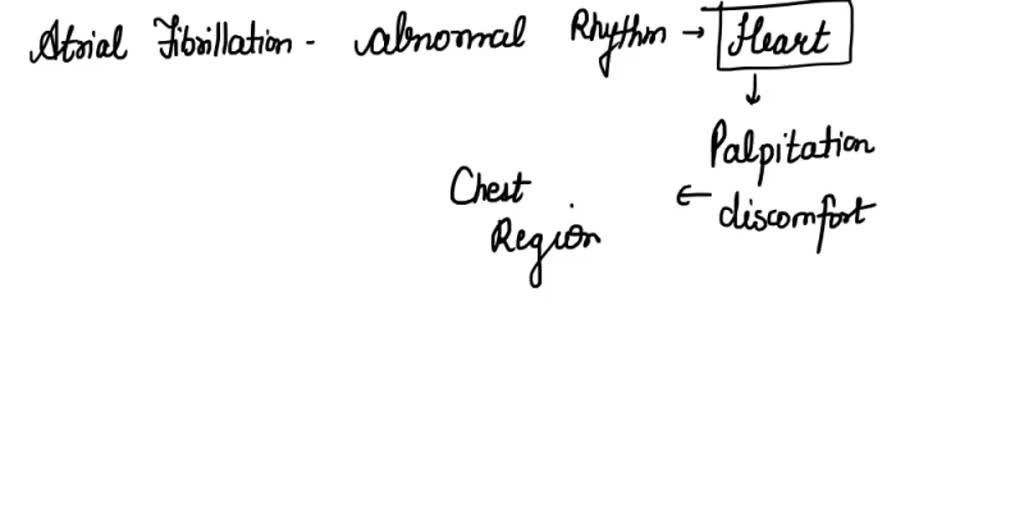 Atrial Fibrillation - abnormal Rhythm → Heart
↓
Palpitation
Chest ← discomfort
Region